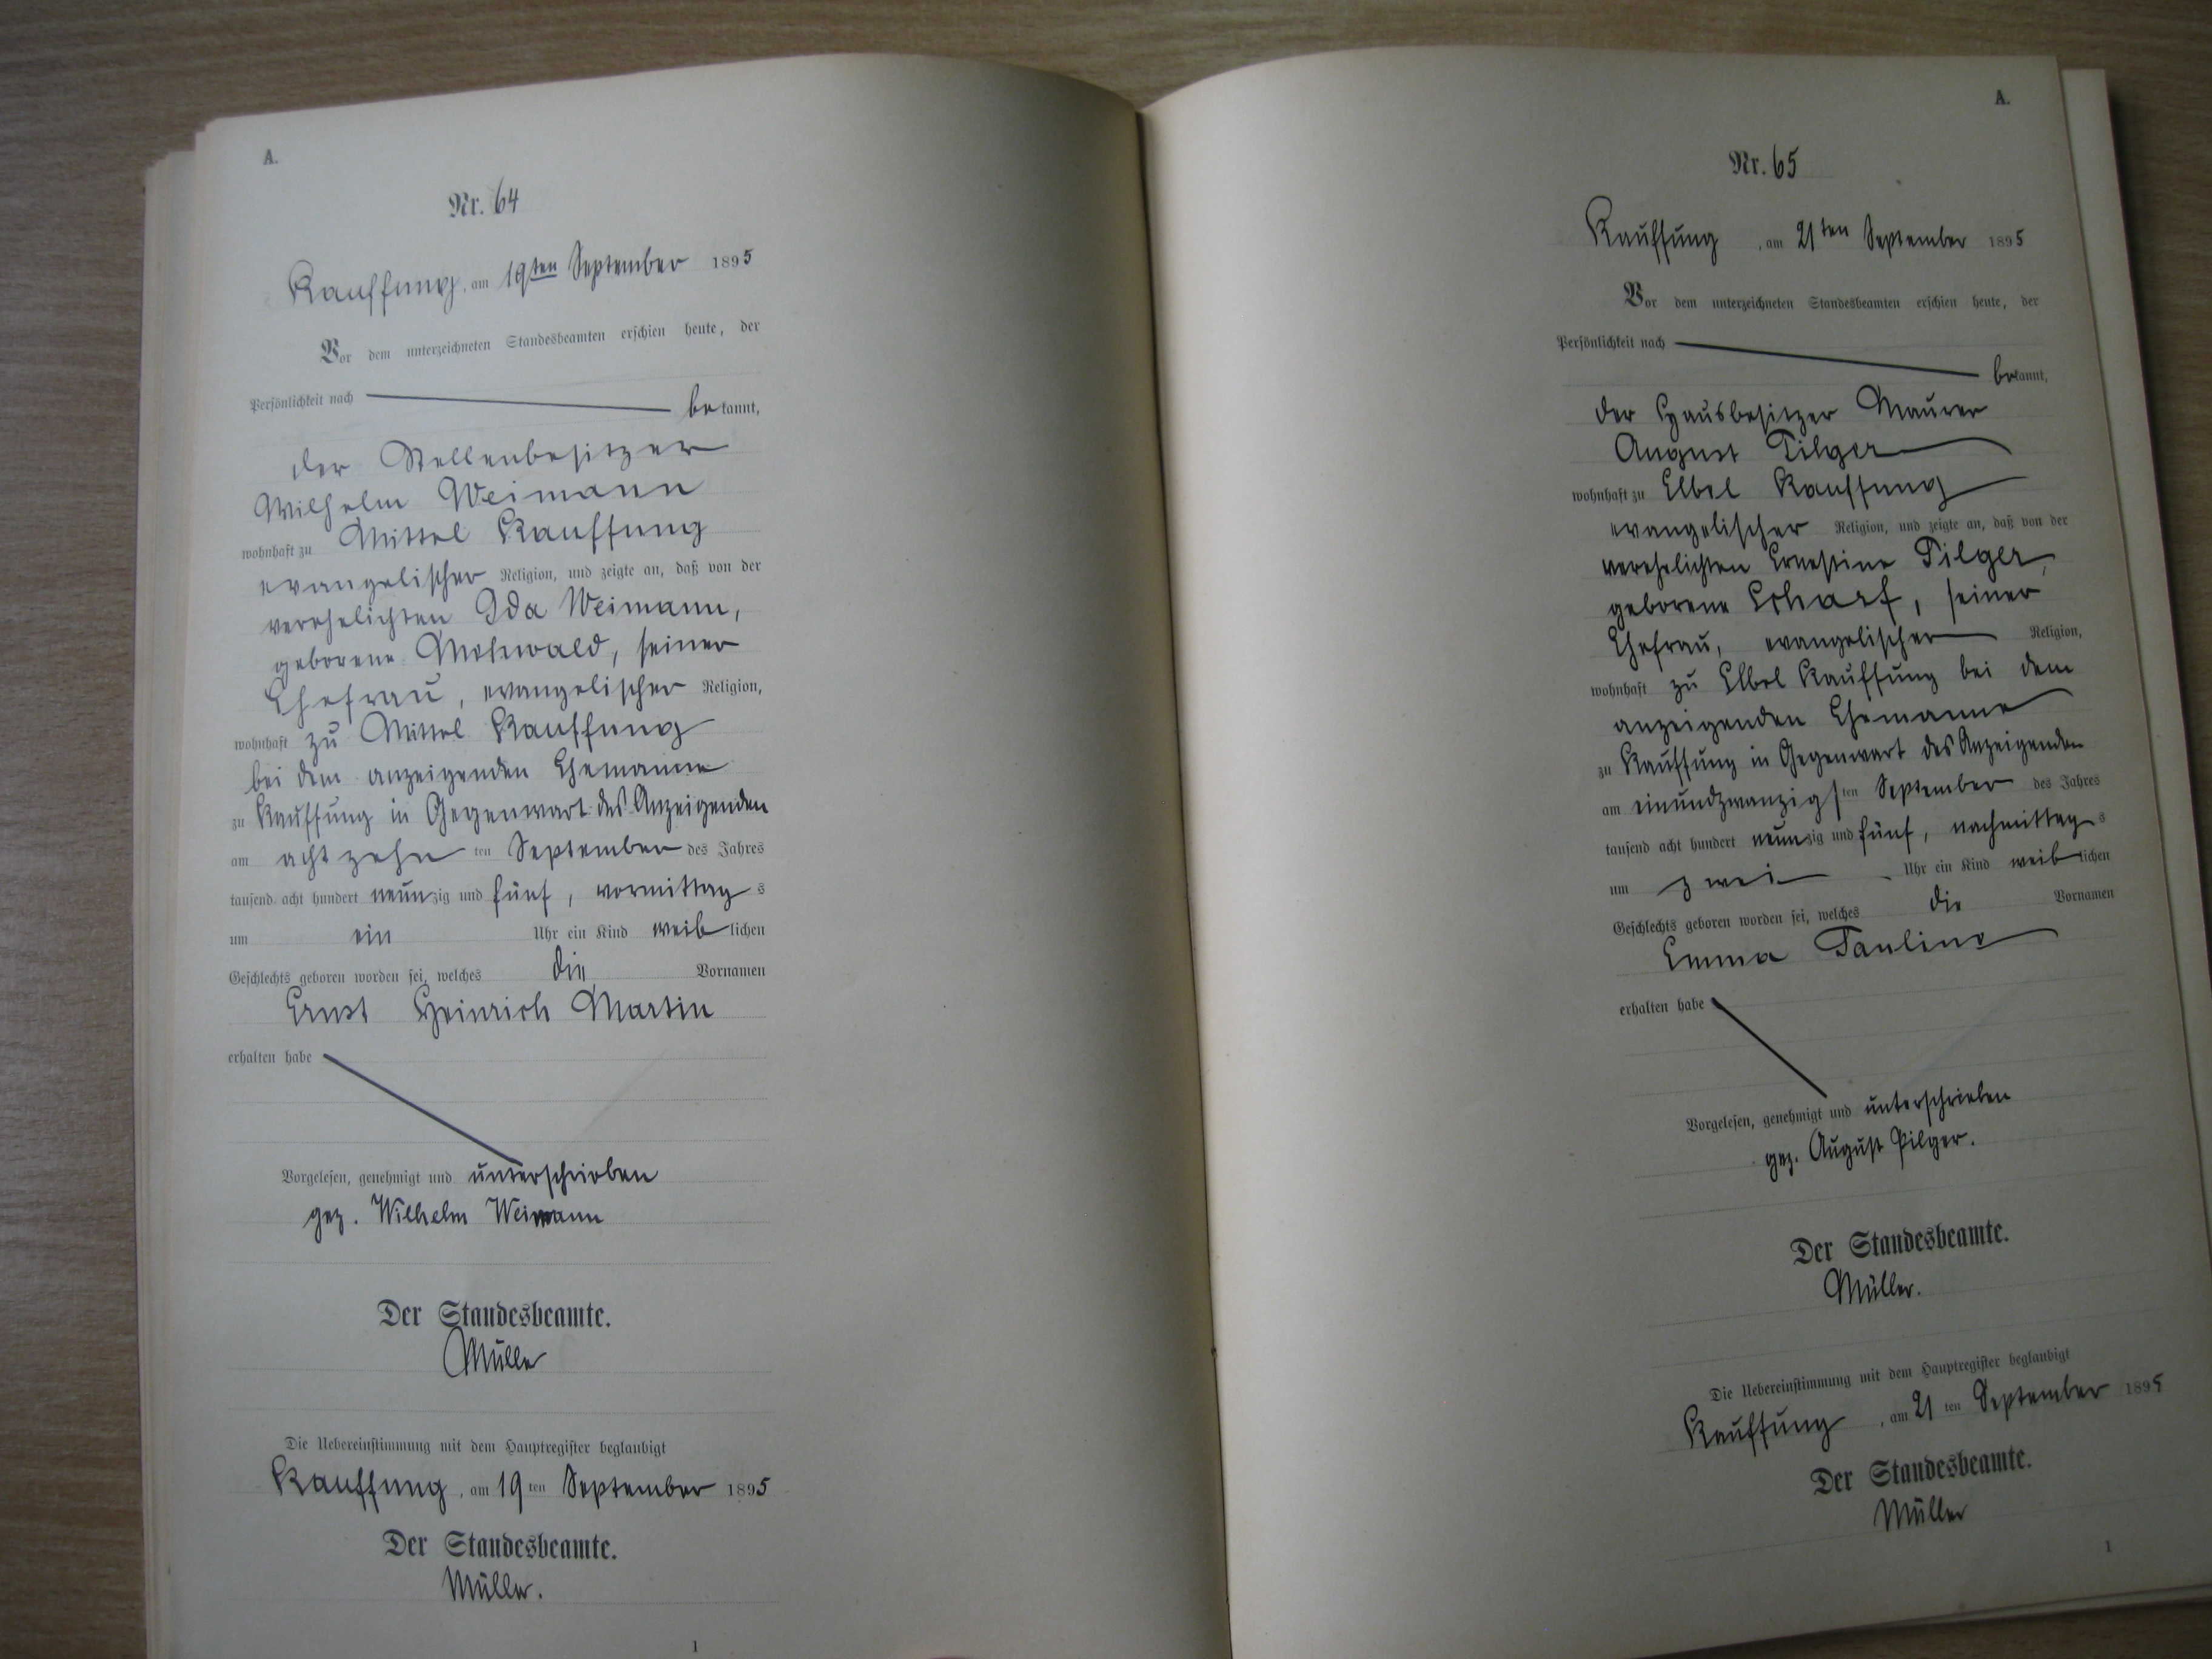 A.
Nr. 64
Kauffung, am 19ten September 1895
Vor dem unterzeichneten Standesbeamten erschien heute, der
Persönlichkeit nach
bekannt,
der Stellenbesitzer
Wilhelm Weimann
wohnhaft zu Mittel Kauffung
evangelischer Religion, und zeigte an, daß von der
verehelichten Ida Weimann,
geborene Mohwald, seiner
Ehefrau, evangelischer Religion,
wohnhaft zu Mittel Kauffung
bei dem anzeigenden Ehemanne
zu Kauffung in Gegenwart des Anzeigenden
am achtzehn ten September des Jahres
tausend acht hundert neunzig und fünf, vormittags
um ein Uhr ein Kind weiblichen
Geschlechts geboren worden sei, welches die Vornamen
Ernst Heinrich Martin
erhalten habe
Vorgelesen, genehmigt und unterschrieben
gez. Wilhelm Weimann
Der Standesbeamte.
Müller
Die Uebereinstimmung mit dem Hauptregister beglaubigt
Kauffung, am 19 ten September 1895
Der Standesbeamte.
Müller.
1
A.
Nr. 65
Kauffung, am 21ten September 1895
Vor dem unterzeichneten Standesbeamten erschien heute, der
Persönlichkeit nach
bekannt,
der Hausbesitzer Maurer
August Pilger
wohnhaft zu Elbel Kauffung
evangelischer Religion, und zeigte an, daß von der
verehelichten Ernestine Pilger,
geborene Scharf, seiner
Ehefrau, evangelischer Religion,
wohnhaft zu Elbel Kauffung bei dem
anzeigenden Ehemanne
zu Kauffung in Gegenwart des Anzeigenden
am einundzwanzigsten September des Jahres
tausend acht hundert neunzig und fünf, nachmittags
um zwei Uhr ein Kind weiblichen
Geschlechts geboren worden sei, welches die Vornamen
Emma Pauline
erhalten habe
Vorgelesen, genehmigt und unterschrieben
gez. August Pilger.
Der Standesbeamte.
Müller.
Die Uebereinstimmung mit dem Hauptregister beglaubigt
Kauffung, am 21 ten September 1895
Der Standesbeamte.
Müller
1